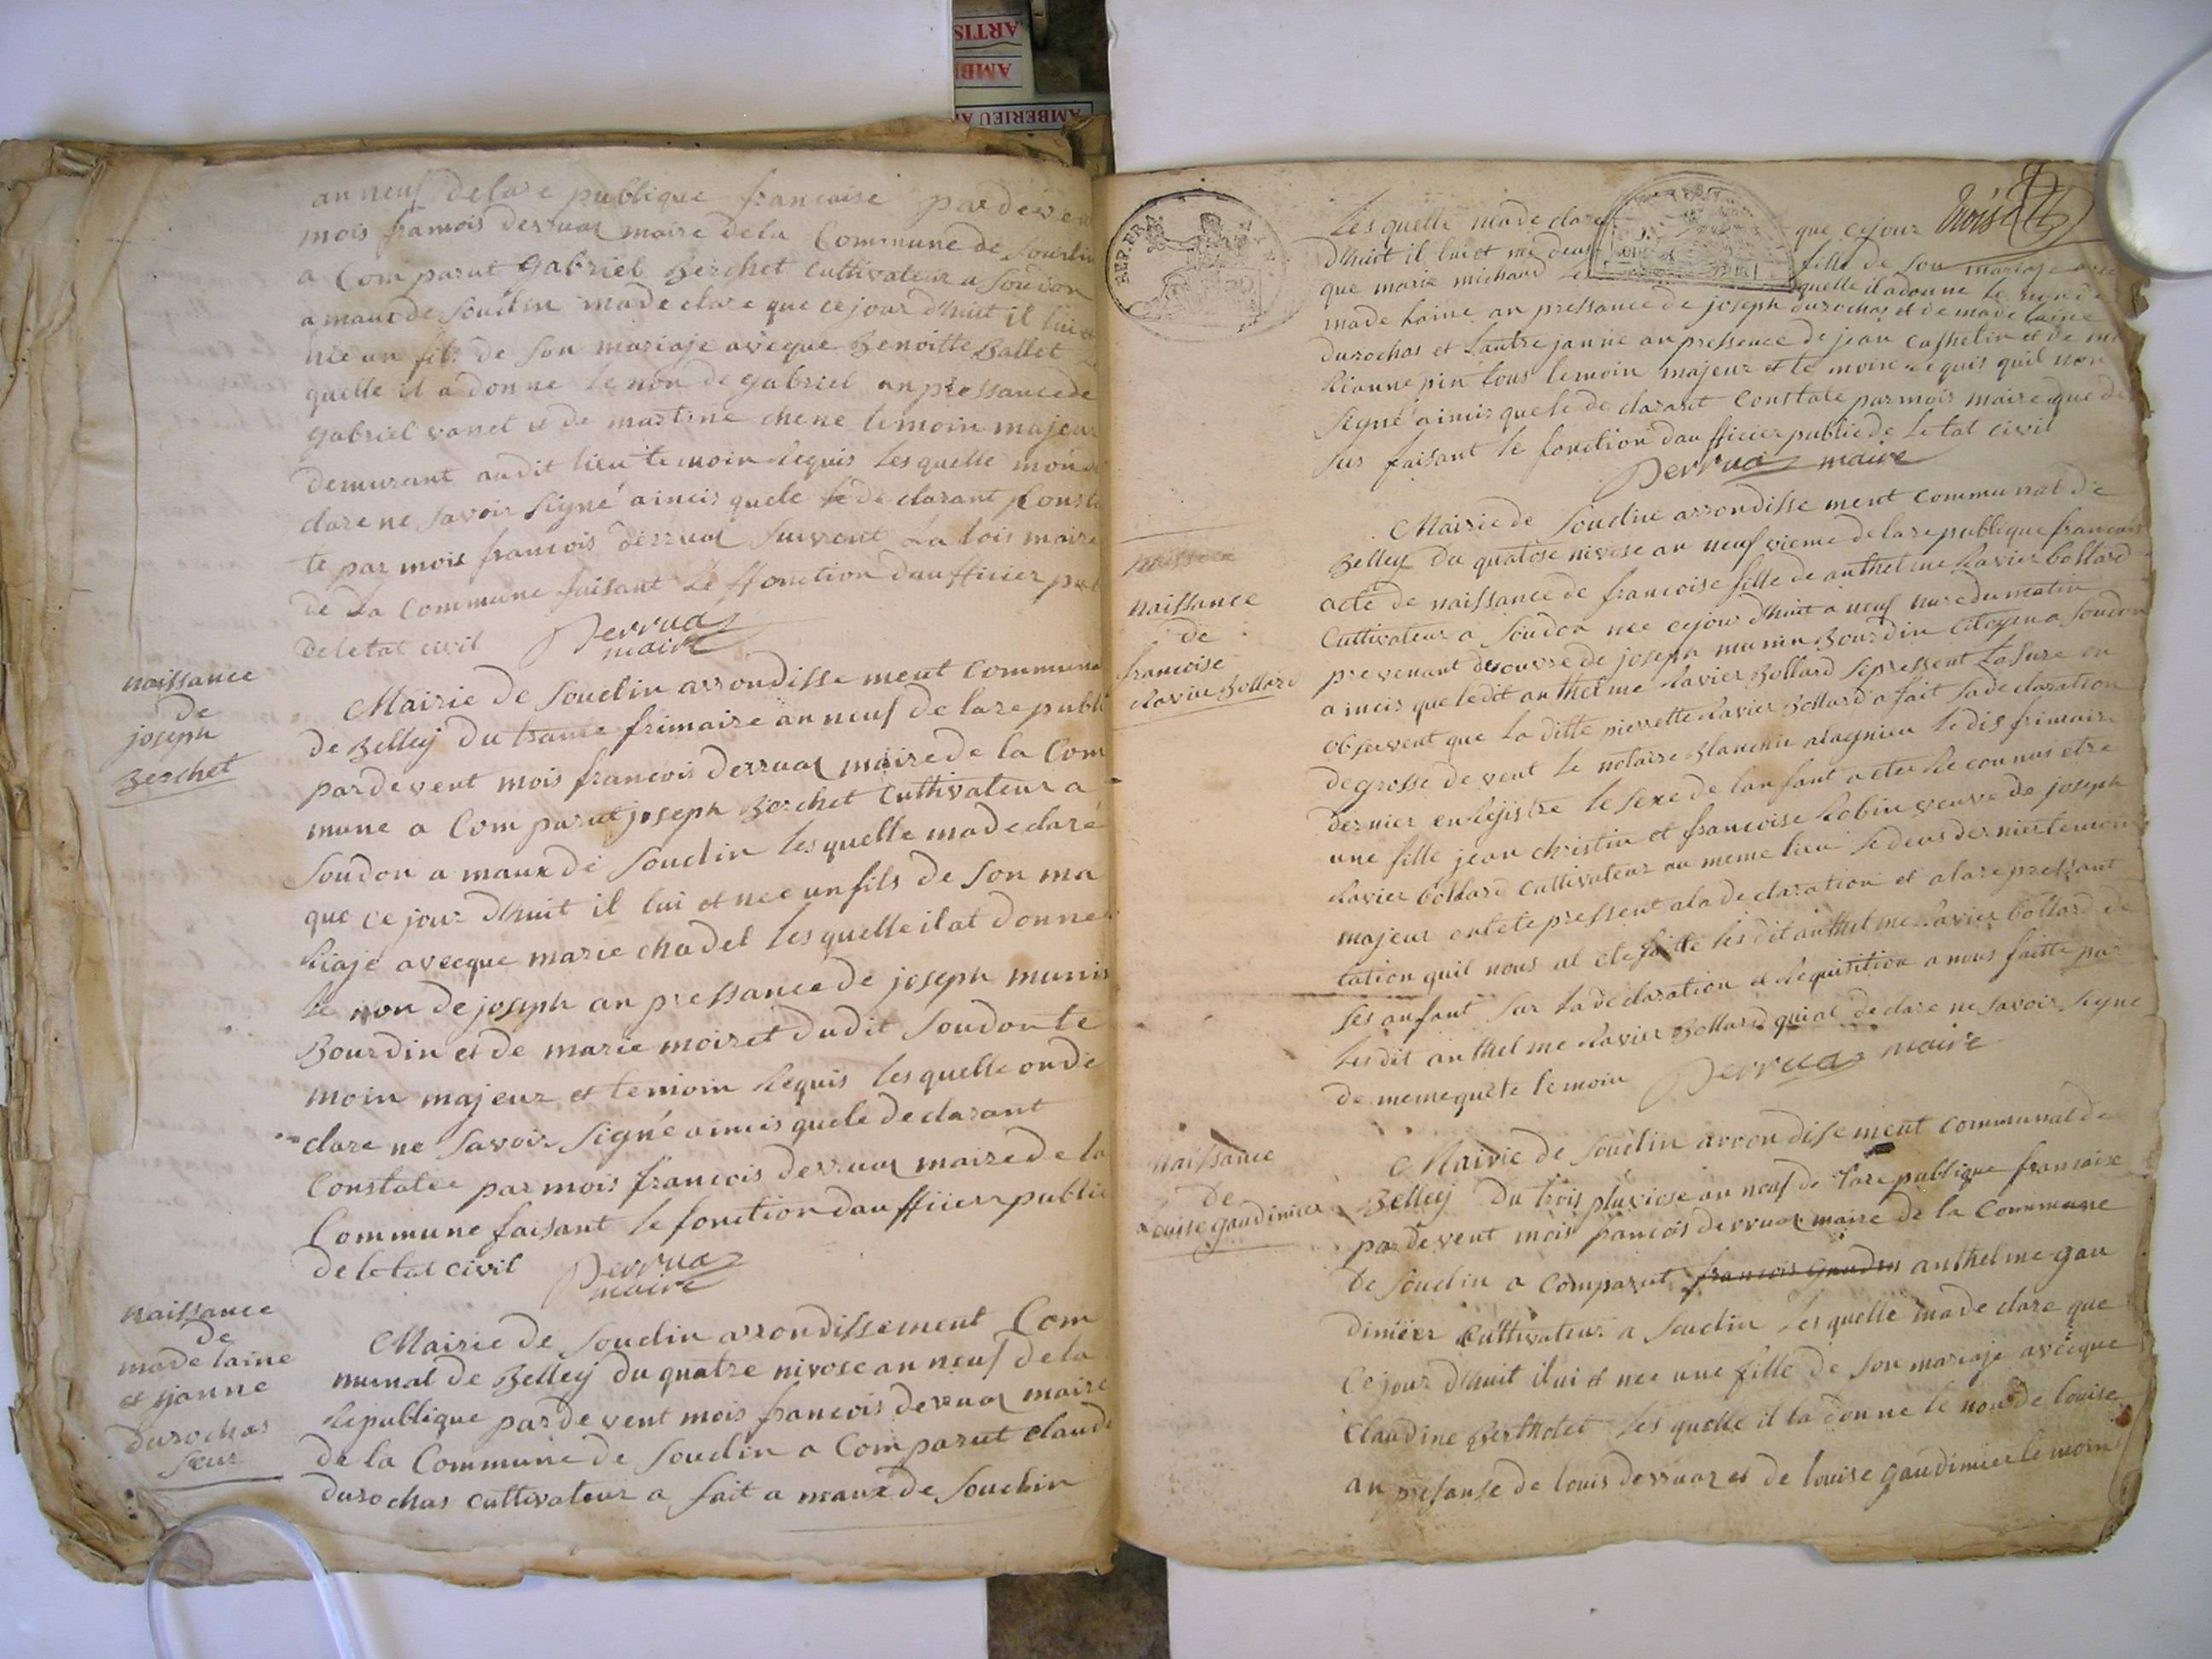 ARTIS
AMB
AMBERIEU
an neuf de la re publique francaise par deve
mois francois derruaz maire de la Commune de Soudin
a Com parut Gabriel Berchet Cultivateur a Soudon
a maux de Soudin ma de clare que ce jour dhuit il lui et
nee un fils de Son mariaje aveque Benoitte Ballet
quelle il a donne le non de gabriel an pressance de
gabriel vanel et de martine chene temoin majeur
demurant audit lieu temoin Requis les quelle mon de
clare ne Savoir Signé aincis quele de clarant Consta
te par mois francois derruaz Suivent la lois maire
de La Commune faisant Le ffonction daufficier pub
de letat civil Derruaz
maire
naissance
de
joseph
Berchet
Mairie de Soudin arrondisse ment Communa
de Belley du trante frimaire an neuf de la re publi
par de vent mois francois derruaz maire de la Com
mune a Com parut joseph Berchet Cultivateur a
Soudon a maux de Soudin les quelle ma de claré
que ce jour dhuit il lui et nee un fils de Son ma
Riajé avecque marie chadel les quelle il at donné
le non de joseph an pressance de joseph munis
Bourdin et de marie moiret dudit Soudon te
moin majeur et temoin Requis les quelle on de
clare ne Savoir Signé aincis quele de clarant
Constatée par mois francois derruaz maire de la
Commune faisant le fonction daufficier public
de letat civil Derruaz
maire
naissance
de
made laine
et janne
durochas
Seur
Mairie de Soudin arrondissement Com
munal de Belley du quatre nivose an neuf de la
Republique par de vent mois francois deruaz maire
de la Commune de Soudin a Com parut claude
durochas cultivateur a fait a maux de Soudin
REP. FRA
Les quelle ma de clare que ce jour trois
dhuit il lui et ne deus fille de Son mariaje avec
que marie michaud Les quelle il a donne le non de
made laine an pressance de joseph durochas et de made laine
durochas et Lautre janne an pressence de jean Cathelin et de
Rianne pin tous temoin majeur et te moin Requis quil non
Signé aincis quele de clarant Constate par mois maire que de
Sus faisant le fonction daufficier public de Le tat civil
Derruaz maire
naissance
de
francoise
Ravier Bollard
Mairie de Soudin arrondisse ment Communal de
Belley Du quatose nivose an neuf vieme de la re publique francaise
acte de naissance de francoise fille de anthelme Ravier bollard
Cultivateur a Soudon nee ce jour dhuit a neuf hure du matin
pre venant de ouvre de joseph munier Bourdin Citoyen a Soudon
a incis que ledit anthelme Ravier Bollard Si pressent La Sure en
observent que La ditte pierrette Ravier Bollard a fait Sa de claration
de grosse de vent Le notaire Blanchin a lagnieu le dis frimaire
dernier enRejistre le Sexe de lan fant a ete Reconnus etre
une fille jean christin et francoise Robin veuve de joseph
Ravier bollard Cultivateur au meme lieu Le deus dernier temoin
majeur ont ete pressent a la de claration et a la re pressant
tation quil nous at ete faitte les dit anthelme Ravier bollard de
Ses anfant Sur La declaration et Requisition a nous faitte par
Les dit an thelme Ravier Bollard qui at de clare ne Savoir Signe
de meme quele temoin Derruaz maire
naissance
de
Louise gaudinier
Mairie de Soudin arrondisement Communal de
Belley du trois pluviose an neuf de la re publique francaise
par de vent mois francois derruaz maire de la Commune
de Soudin a Comparut francois Gaudin anthelme gau
dinier Cultivateur a Soudin Les quelle ma de clare que
Ce jour dhuit il ui et nee une fille de Son mariaje avecque
Claudine Bertholet les quelle il la donne le non de louise
an presanse de louis derruaz et de louise gaudinier temoin